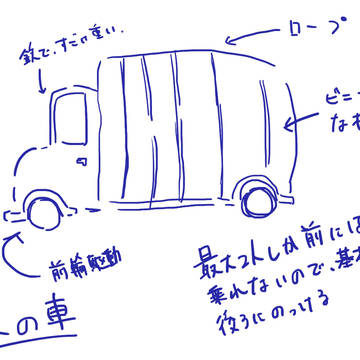 鉄で、すごい重い。
ロープ
ビニ
なも
前輪駆動
の車
最大2トしか前には
乗れないので、基本
後ろにのっける